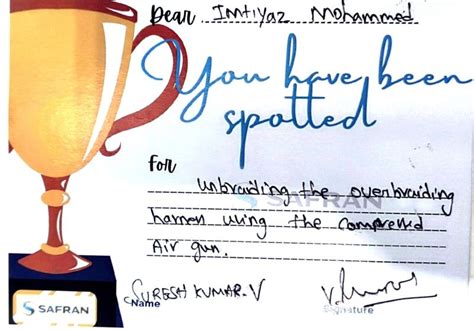 Dear Imtiyaz Mohammed
You have been
spotted
For
unbraiding the overbraiding
SAFRAN
harness using the compressed
Air gun.
SURESH KUMAR. V
Name
Signature
SAFRAN